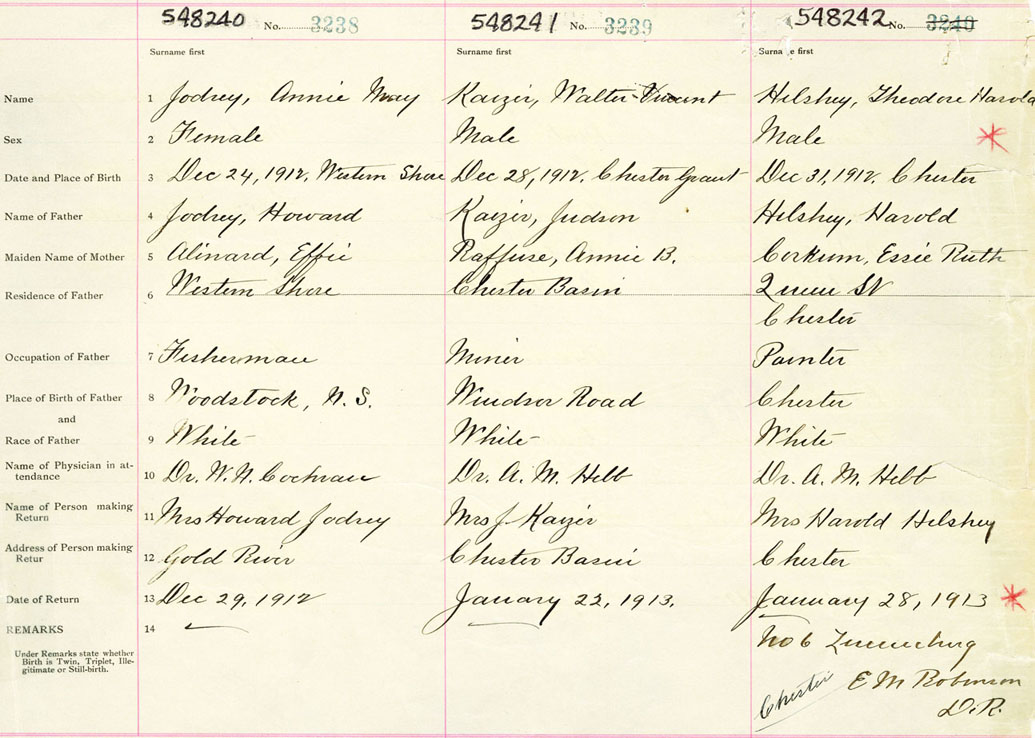 548240 No. 3238 548241 No. 3239 548242 No. 3240
Surname first Surname first Surname first
Name 1 Jodrey, Annie May Kaizer, Walter Vincent Hilshey, Theodore Harold
Sex 2 Female Male Male
Date and Place of Birth 3 Dec 24, 1912. Western Shore Dec 28, 1912. Chester Grant Dec 31, 1912. Chester
Name of Father 4 Jodrey, Howard Kaizer, Judson Hilshey, Harold
Maiden Name of Mother 5 Effie Raffuse, Annie B. Corkum, Essie Ruth
Residence of Father 6 Western Shore Chester Basin Queen St
Chester
Occupation of Father 7 Fisherman Miner Painter
Place of Birth of Father 8 Woodstock, N.S. Windsor Road Chester
and
Race of Father 9 White White White
Name of Physician in at-
tendance 10 Dr. W. N. Cochran Dr. A. M. Hebb Dr. A. M. Hebb
Name of Person making
Return 11 Mrs Howard Jodrey Mrs J Kaizer Mrs Harold Hilshey
Address of Person making
Retur 12 Gold River Chester Basin Chester
Date of Return 13 Dec 29, 1912 January 22, 1913. January 28, 1913
REMARKS 14
No 6 Lunenburg
Under Remarks state whether
Birth is Twin, Triplet, Ille-
gitimate or Still-birth.
Chester E M Robinson
D.R.